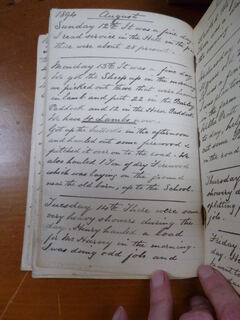 1894 August
Sunday 12th It was a fine day
I read service in the Hall in the
there were about 28 present.
Monday 13th It was a fine day
We got the Sheep up in the morning
an picked out those that were having
in lamb and put 22 in the Barley
Paddock and in the Horse Paddock
We have 4 Lambs now.
Got up the Bullocks in the afternoon
and hauled out some firewood &
pitched it over on the road. We
also hauled 1 Ton of dry Firewood
which was laying on the ground
near the old barn, up to the School.
Tuesday 14th There were some
very heavy showers during the
day. Henry hauled a load
for Mr Harvey in the morning.
I was doing odd jobs and
Thursday
showery
splitting
job.
Friday
day, I